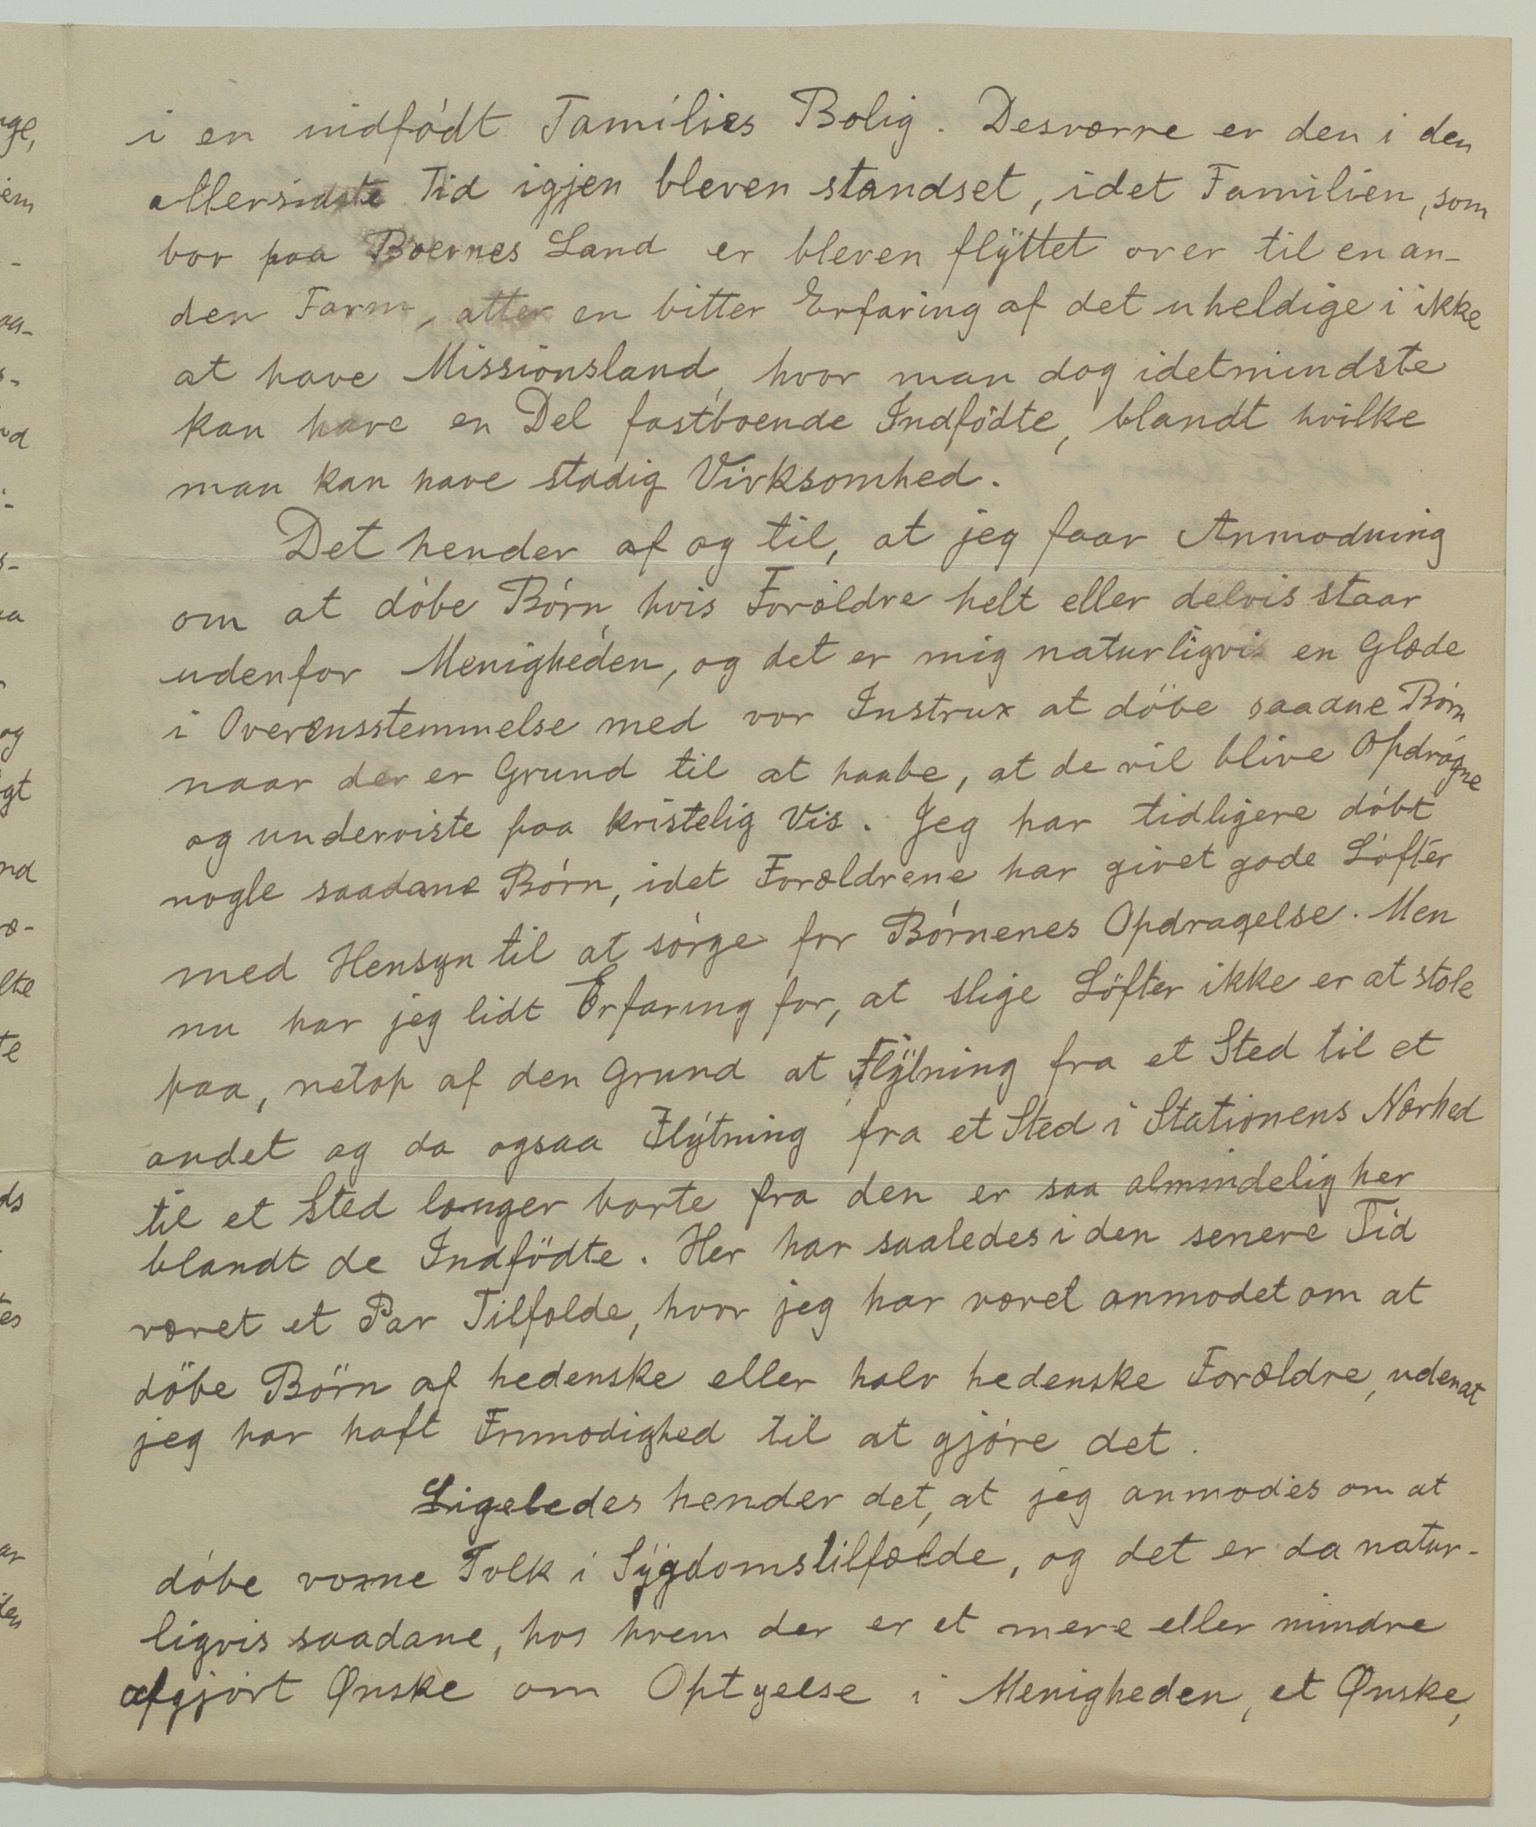 i en indfödt Families Bolig. Desværre er den i den
allersidste Tid igjen bleven standset, idet Familien, som
bor paa Boernes Land er bleven flÿttet over til en an-
den Farm, atter en bitter Erfaring af det uheldige i ikke
at have Missionsland, hvor man dog idetmindste
kan have en Del fastboende Indfödte, blandt hvilke
man kan have stadig Virksomhed.
Det hender af og til, at jeg faar Anmodning
om at döbe Börn, hvis Foröldre helt eller delvis staar
udenfor Menigheden, og det er mig naturligvis en Glæde
i Overensstemmelse med vor Instrux at döbe saadne Börn
naar der er Grund til at haabe, at de vil blive Opdragne
og underviste paa kristelig Vis. Jeg har tidligere döbt
nogle saadane Börn, idet Forældrene har givet gode Löfter
med Hensyn til at sörge for Börnenes Opdragelse. Men
nu har jeg lidt Erfaring for, at slige Löfter ikke er at stole
paa, netop af den Grund at Flÿtning fra et Sted til et
andet og da ogsaa Flÿtning fra et Sted i Stationens Nærhed
til et Sted længer borte fra den er saa almindelig her
blandt de Indfödte. Her har saaledes i den senere Tid
været et Par Tilfælde, hvor jeg har været anmodet om at
döbe Börn af hedenske eller halv hedenske Forældre, uden at
jeg har haft Frimodighed til at gjöre det.
Ligeledes hender det, at jeg anmodes om at
döbe voxne Folk i Sÿgdomstilfælde, og det er da natur-
ligvis saadane, hos hvem der er et mere eller mindre
afgjört Ønske om Optyelse i Menigheden, et Ønske,